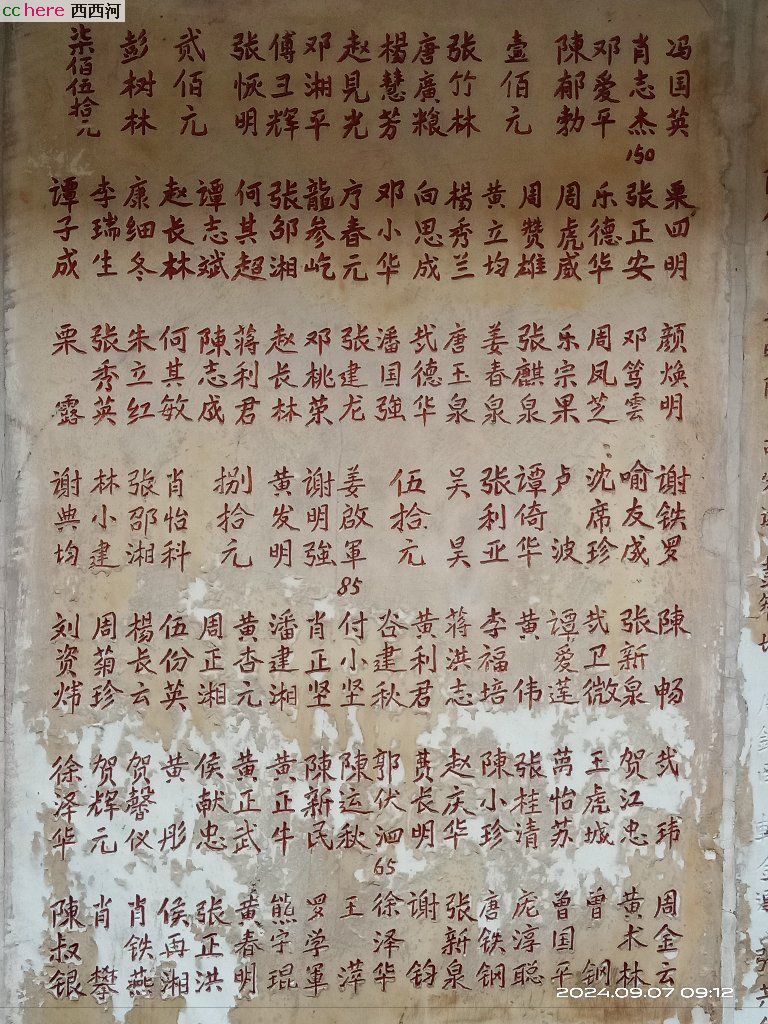 柒佰伍拾元
彭树林
贰佰元
张恢明
傅丑辉
邓湘平
赵見光
楊慧芳
唐廣粮
张竹林
壹佰元
陳郁勃
邓愛平
肖志杰
150
冯国英
谭子成
李瑞生
康细冬
赵长林
谭志斌
何其超
张邵湘
龍参屹
邓小华
向思成
楊秀兰
黄立均
周赞雄
周虎威
乐德华
张正安
栗四明
栗露
张秀英
朱立红
何其敏
陳志成
蒋利君
赵长林
邓桃荣
张建龙
潘国強
唐玉泉
姜春泉
张麒泉
乐宗果
周凤芝
邓笃雲
颜焕明
谢典均
林小建
张邵湘
肖怡科
捌拾元
黄发明
谢明強
姜啟軍
85
伍拾元
吴昊
张利亚
谭倚华
卢波
沈席珍
喻友成
谢铁罗
刘资炜
周菊珍
楊长云
伍份英
周正湘
黄杏元
潘建湘
肖正坚
付小坚
谷建秋
黄利君
蒋洪志
李福培
黄伟
谭愛莲
张新泉
陳畅
徐泽华
贺辉元
贺馨仪
黄彤
侯献忠
黄正武
黄正牛
陳新民
陳运秋
郭伏泗
65
龚长明
赵庆华
陳小珍
张桂清
萬怡苏
王虎城
贺江忠
陳叔银
肖攀
肖铁燕
侯再湘
张正洪
黄春明
熊宇琨
罗学軍
王萍
徐泽华
谢钧
张新泉
唐铁钢
庞淳聪
曾国平
曾钢
黄术林
周金云
cchere 西西河
2024.09.07 09:12